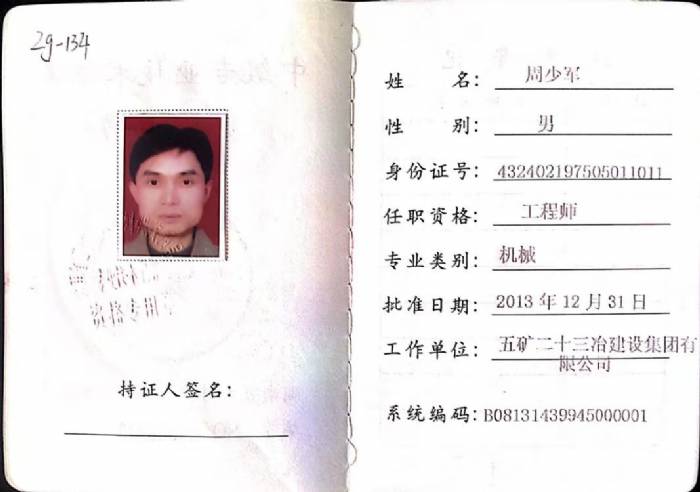 zg-134
持证人签名：
姓 名： 周少军
性 别： 男
身份证号： 432402197505011011
任职资格： 工程师
专业类别： 机械
批准日期： 2013 年 12 月 31 日
工作单位： 五矿二十三冶建设集团有
限公司
系统编码： B08131439945000001